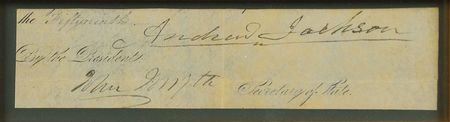 the Fiftyninth.
Andrew Jackson
By the President.
John Forsyth Secretary of State.